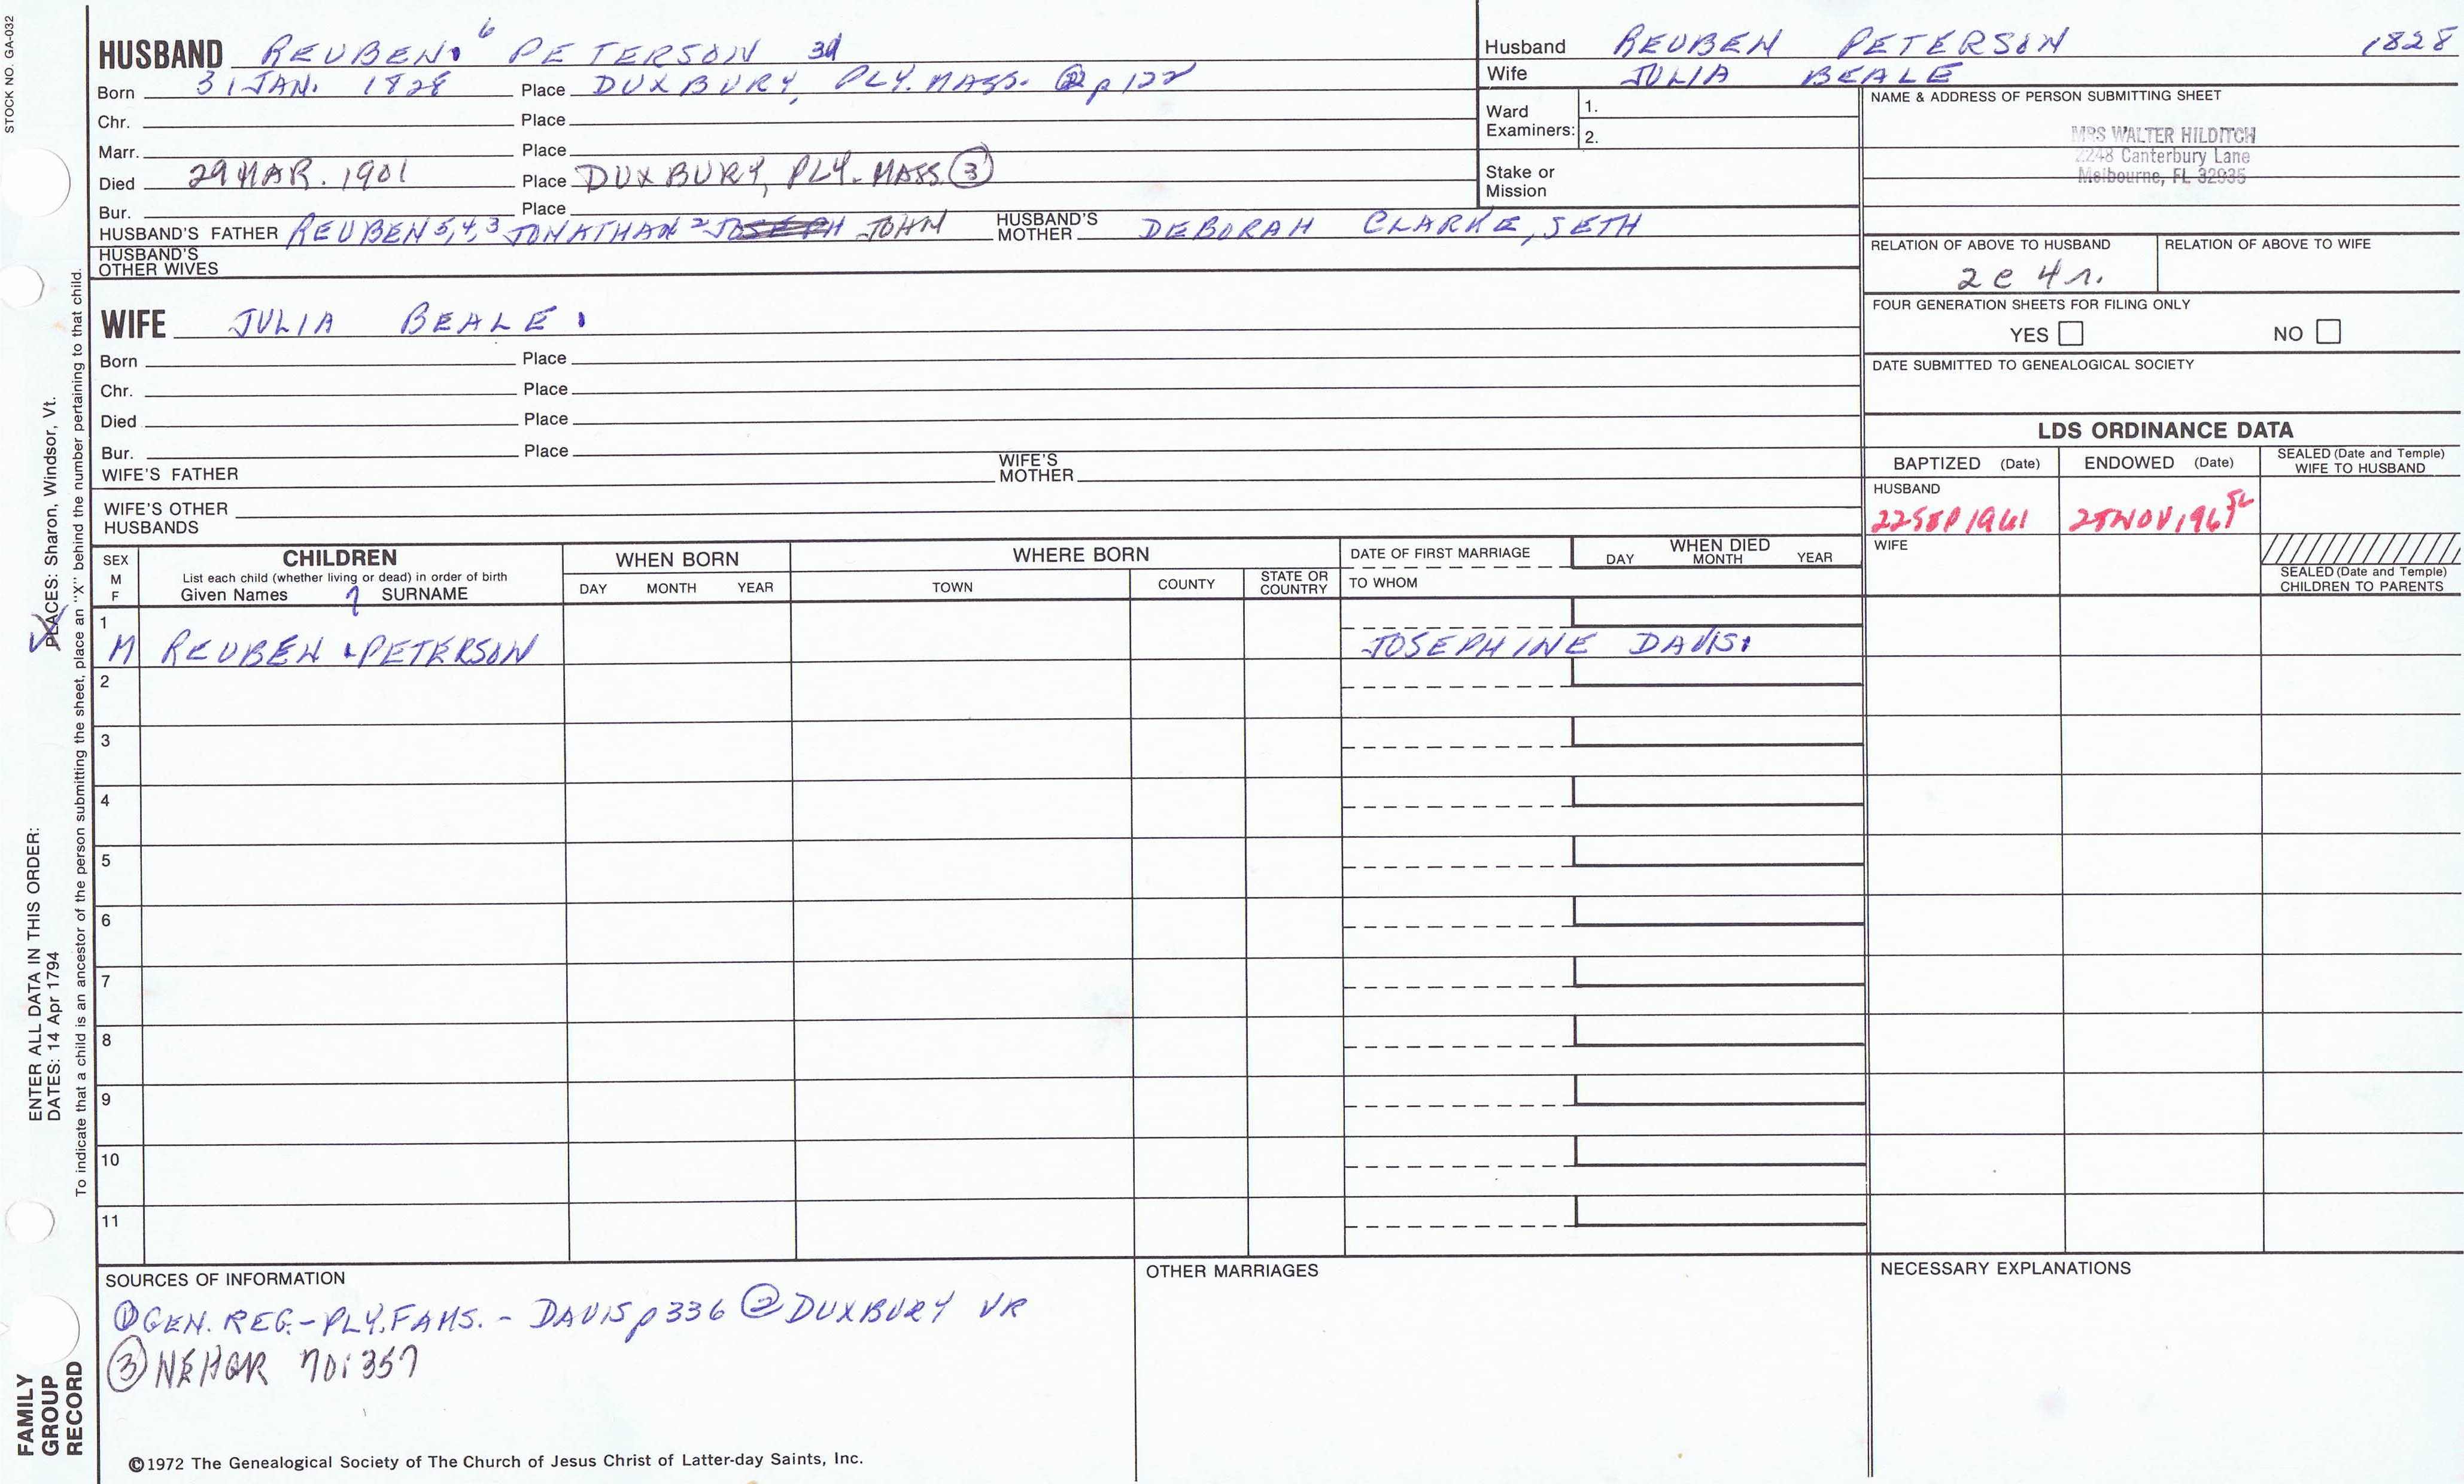 STOCK NO. GA-032
HUSBAND REUBEN 6 PETERSON 3d
Born 31 JAN. 1828 Place DUXBURY, PLY. MASS. ② p 122
Chr. Place
Marr. Place
Died 29 MAR. 1901 Place DUXBURY, PLY. MASS ③
Bur. Place
HUSBAND'S FATHER REUBEN 5,4,3 JONATHAN 2 JOHN HUSBAND'S MOTHER DEBORAH CLARKE, SETH
HUSBAND'S OTHER WIVES
Husband REUBEN PETERSON 1828
Wife JULIA BEALE
Ward Examiners: 1.
2.
Stake or Mission
NAME & ADDRESS OF PERSON SUBMITTING SHEET
MRS WALTER HILDITCH
2248 Canterbury Lane
Melbourne, FL 32935
RELATION OF ABOVE TO HUSBAND RELATION OF ABOVE TO WIFE
2 c 4 r.
FOUR GENERATION SHEETS FOR FILING ONLY
YES NO
DATE SUBMITTED TO GENEALOGICAL SOCIETY
WIFE JULIA BEALE
Born Place
Chr. Place
Died Place
Bur. Place
WIFE'S FATHER WIFE'S MOTHER
WIFE'S OTHER HUSBANDS
LDS ORDINANCE DATA
BAPTIZED (Date) ENDOWED (Date) SEALED (Date and Temple) WIFE TO HUSBAND
HUSBAND
22 SEP 1961 NOV SL
WIFE
SEALED (Date and Temple) CHILDREN TO PARENTS
SEX M F
CHILDREN
List each child (whether living or dead) in order of birth
Given Names SURNAME
WHEN BORN
DAY MONTH YEAR
WHERE BORN
TOWN COUNTY STATE OR COUNTRY
DATE OF FIRST MARRIAGE
TO WHOM
WHEN DIED
DAY MONTH YEAR
1
M REUBEN 7 PETERSON JOSEPHINE DAVIS
2
3
4
5
6
7
8
9
10
11
SOURCES OF INFORMATION
① GEN. REG.-PLY. FAMS. - DAVIS p 336 ② DUXBURY VR
③ NEHGR 70:357
OTHER MARRIAGES
NECESSARY EXPLANATIONS
©1972 The Genealogical Society of The Church of Jesus Christ of Latter-day Saints, Inc.
FAMILY GROUP RECORD
ENTER ALL DATA IN THIS ORDER:
DATES: 14 Apr 1794 PLACES: Sharon, Windsor, Vt.
To indicate that a child is an ancestor of the person submitting the sheet, place an "X" behind the number pertaining to that child.